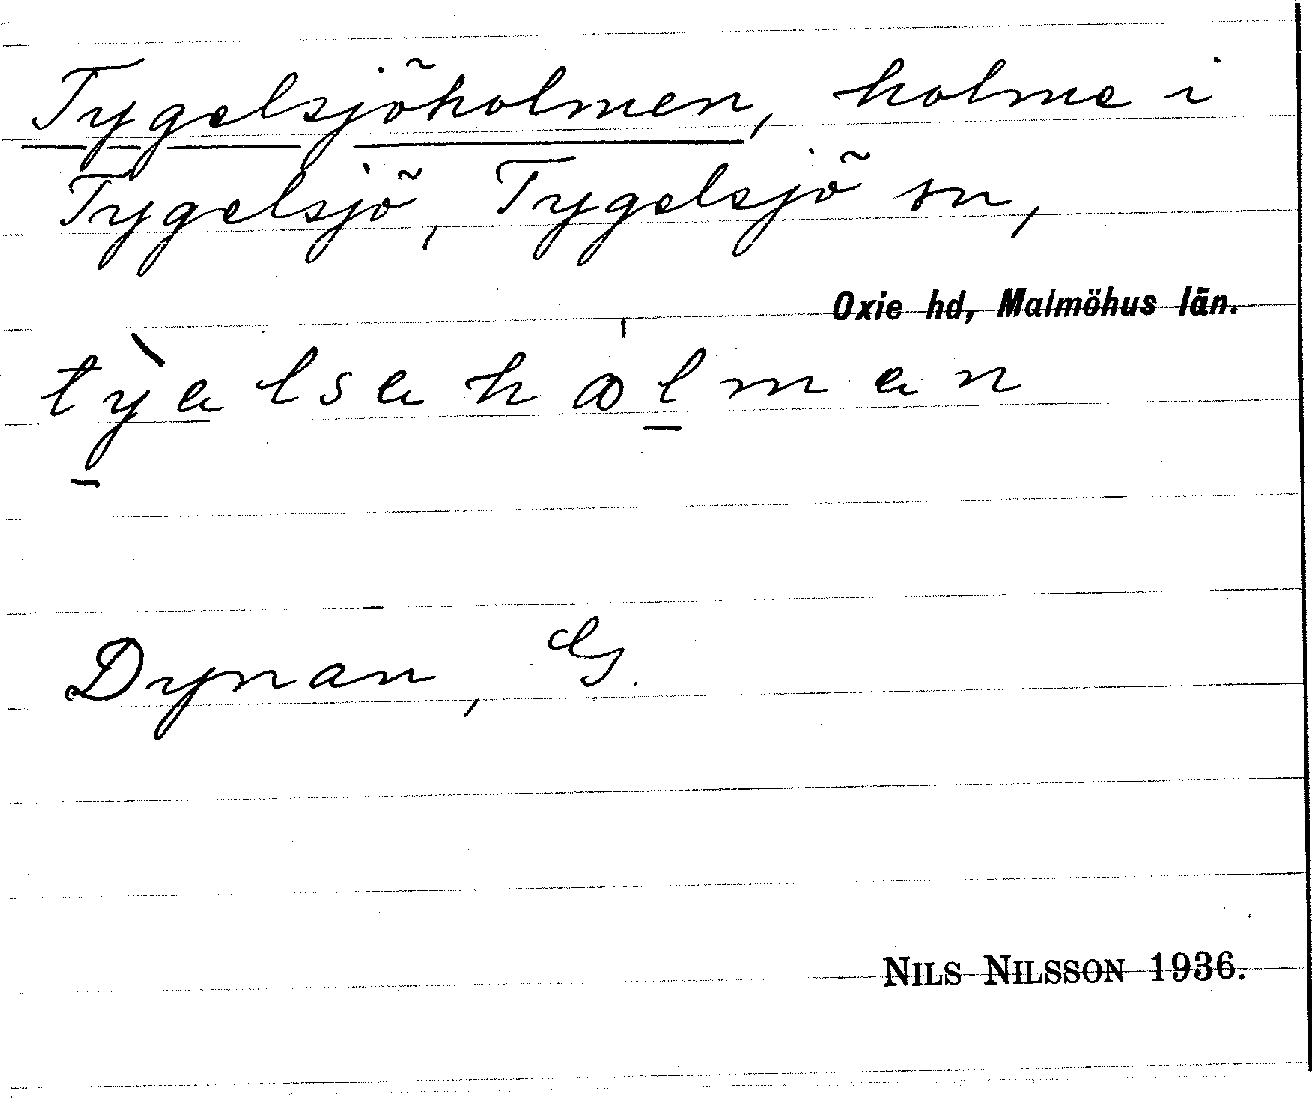 Tygelsjöholmen, holme i
Tygelsjö, Tygelsjö sn,
Oxie hd, Malmöhus län.
tỳalsahålman
Dynan, G.
NILS NILSSON 1936.